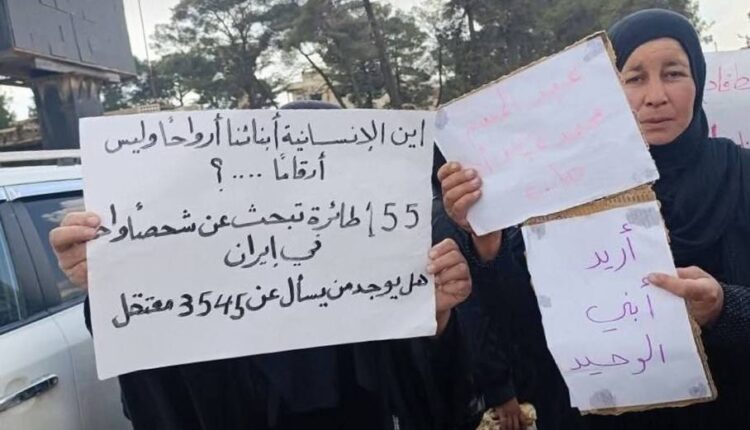 اين الإنسانية أبنائنا أرواحًا وليس
أرقامًا .... ؟
155 طائرة تبحث عن شخصًا واحد
في إيران
هل يوجد من يسأل عن 3545 معتقل
عبد المنعم
محمد
أريد
أبني
الوحيد